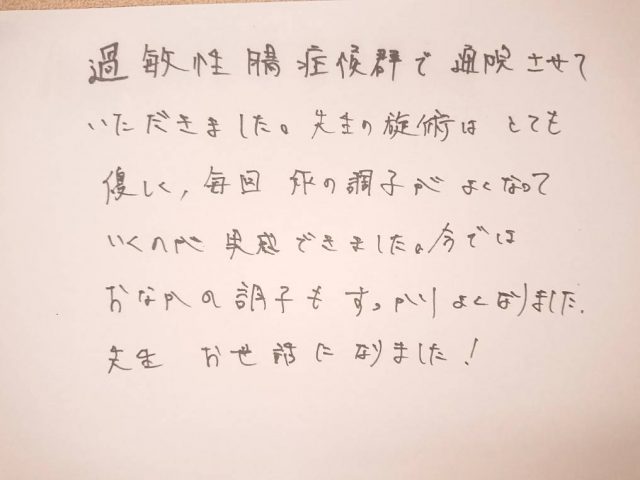 過敏性腸症候群で通院させて
いただきました。先生の施術はとても
優しく,毎回 体の調子がよくなって
いくのが実感できました。今では
おなかの調子もすっかりよくなりました.
先生 お世話になりました!